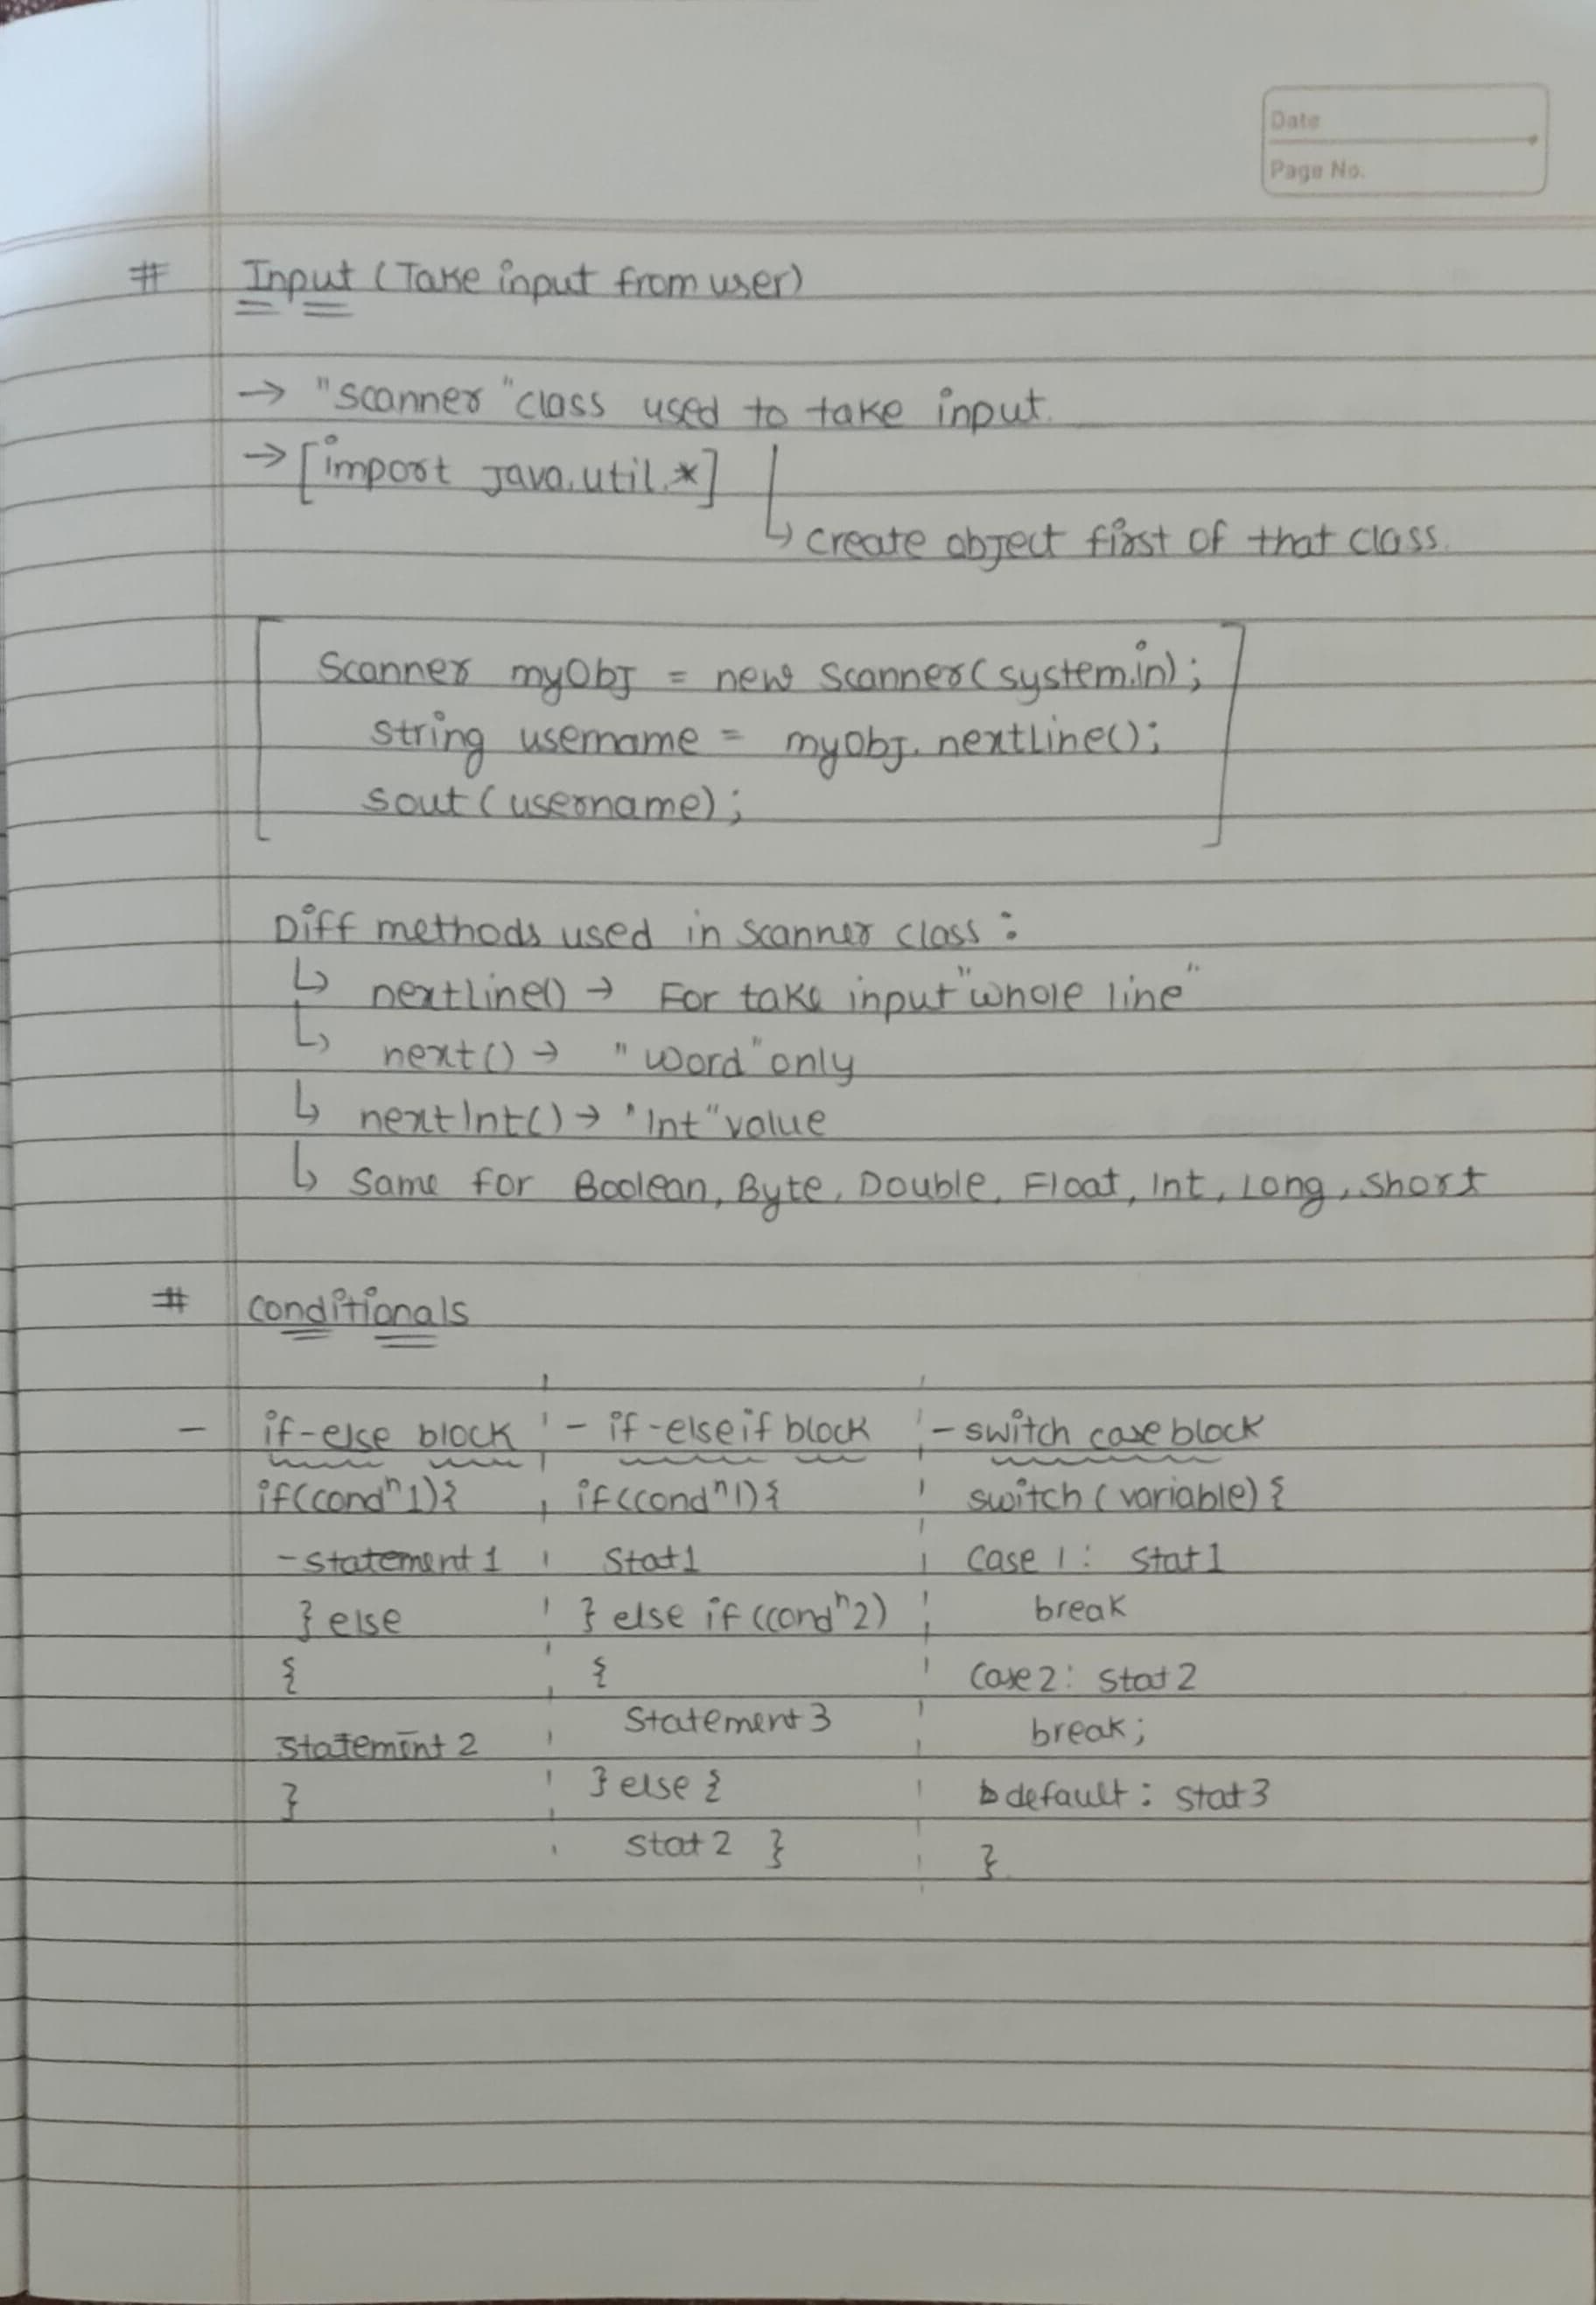 Date
Page No.
# Input (Take input from user)
→ "Scanner" class used to take input.
→ [import Java.util.*]
↳ create object first of that class.
Scanner myObj = new Scanner(system.in);
String username = myObj.nextLine();
sout(username);
Diff methods used in scanner class :
↳ nextline() → For take input "whole line"
↳ next() → "word" only
↳ nextInt() → "Int" value
↳ Same for Boolean, Byte, Double, Float, Int, Long, Short
# conditionals
- if-else block
if(condⁿ1){
- statement 1
} else
{
statement 2
}
- if-elseif block
if(condⁿ1){
Stat1
} else if (condⁿ2)
{
Statement 3
} else {
stat 2 }
- switch case block
switch (variable) {
case 1: stat 1
break
case 2: stat 2
break;
default : stat 3
}